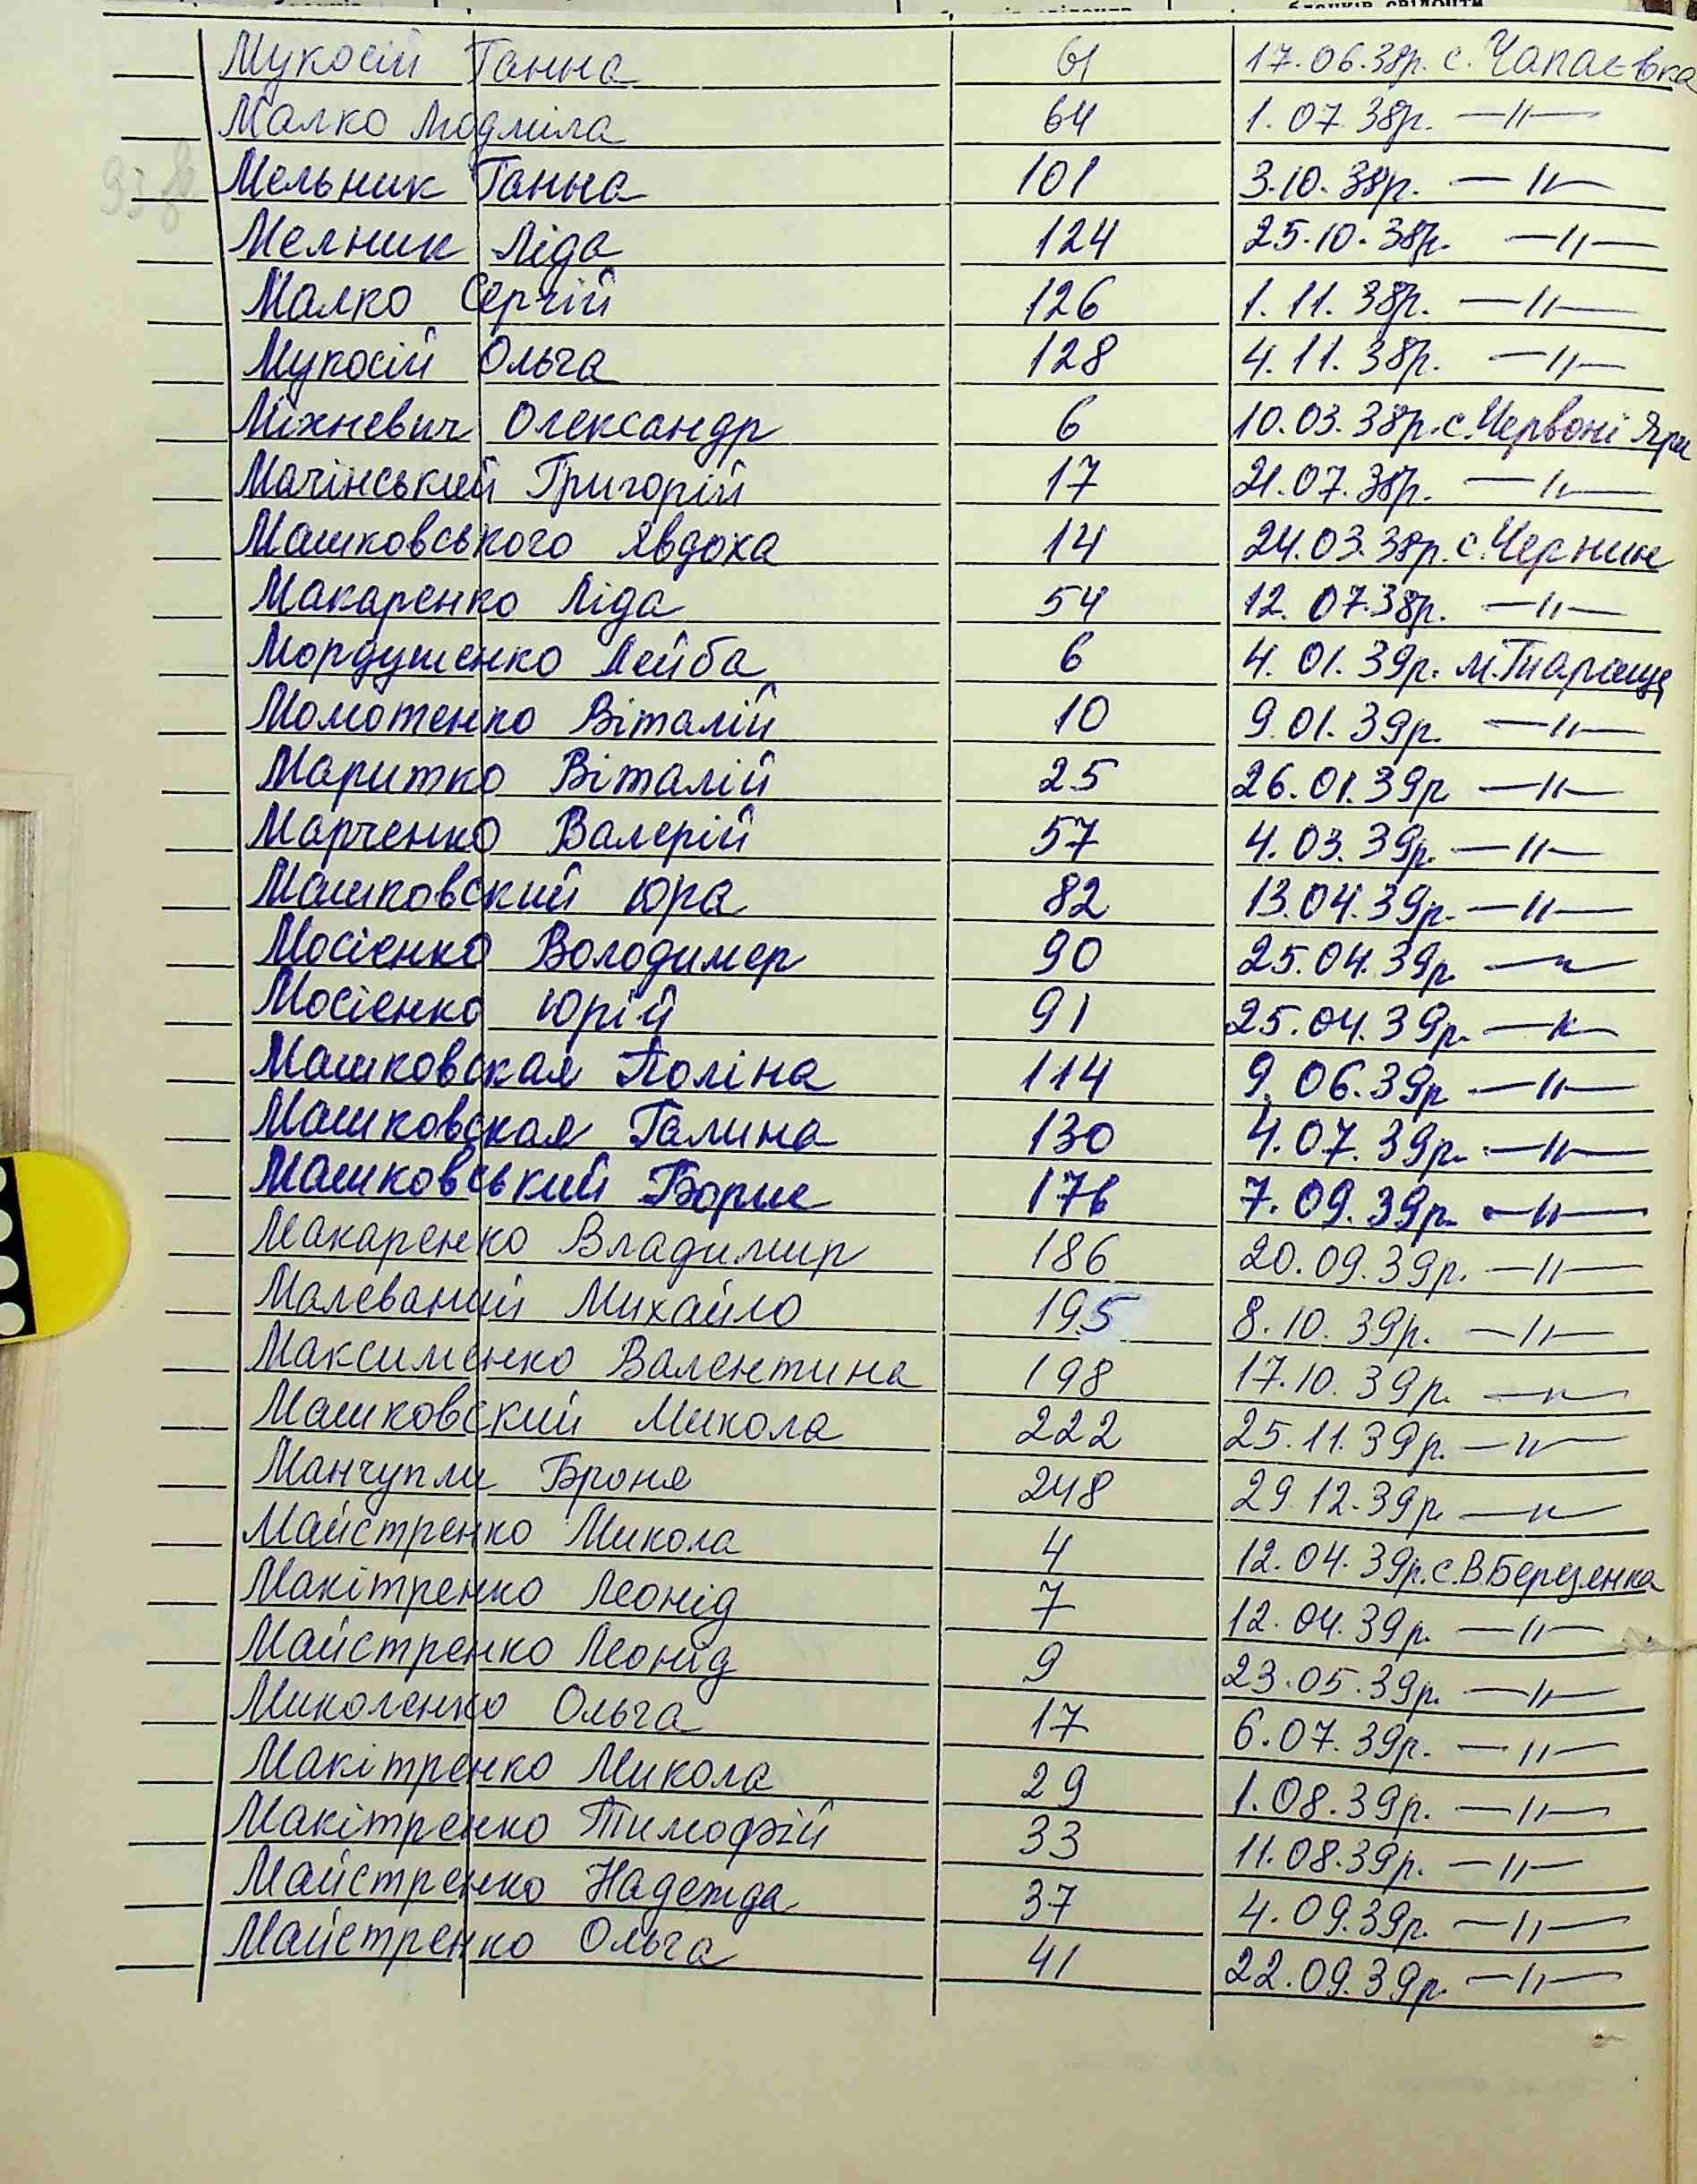 бланків свідоцтв
Мукосій Ганна 61 17.06.38р. с. Чапаєвка
Малко Людміла 64 1.07.38р. —"—
Мельник Ганна 101 3.10.38р. —"—
Мелник Ліда 124 25.10.38р. —"—
Малко Сергій 126 1.11.38р. —"—
Мукосій Ольга 128 4.11.38р. —"—
Міхневич Олександр 6 10.03.38р. с. Червоні Яри
Мачінський Григорій 17 21.07.38р. —"—
Машковського Явдоха 14 24.03.38р. с. Чернин
Макаренко Ліда 54 12.07.38р. —"—
Мордушенко Лейба 6 4.01.39р. м. Тараща
Момотенко Віталій 10 9.01.39р. —"—
Маритко Віталій 25 26.01.39р —"—
Марченко Валерій 57 4.03.39р. —"—
Машковский Юра 82 13.04.39р. —"—
Мосієнко Володимер 90 25.04.39р. —"—
Мосієнко Юрій 91 25.04.39р. —"—
Машковская Поліна 114 9.06.39р —"—
Машковская Галина 130 4.07.39р. —"—
Машковський Борис 176 7.09.39р. —"—
Макаренко Владимир 186 20.09.39р. —"—
Малеваний Михайло 195 8.10.39р. —"—
Максименко Валентина 198 17.10.39р. —"—
Машковский Микола 222 25.11.39р. —"—
Манчупли Броня 248 29.12.39р. —"—
Майстренко Микола 4 12.04.39р. с. В. Березянка
Макітренко Леонід 7 12.04.39р. —"—
Майстренко Леонід 9 23.05.39р. —"—
Миколенко Ольга 17 6.07.39р. —"—
Макітренко Микола 29 1.08.39р. —"—
Макітренко Тимофій 33 11.08.39р. —"—
Майстренко Надежда 37 4.09.39р. —"—
Майстренко Ольга 41 22.09.39р. —"—